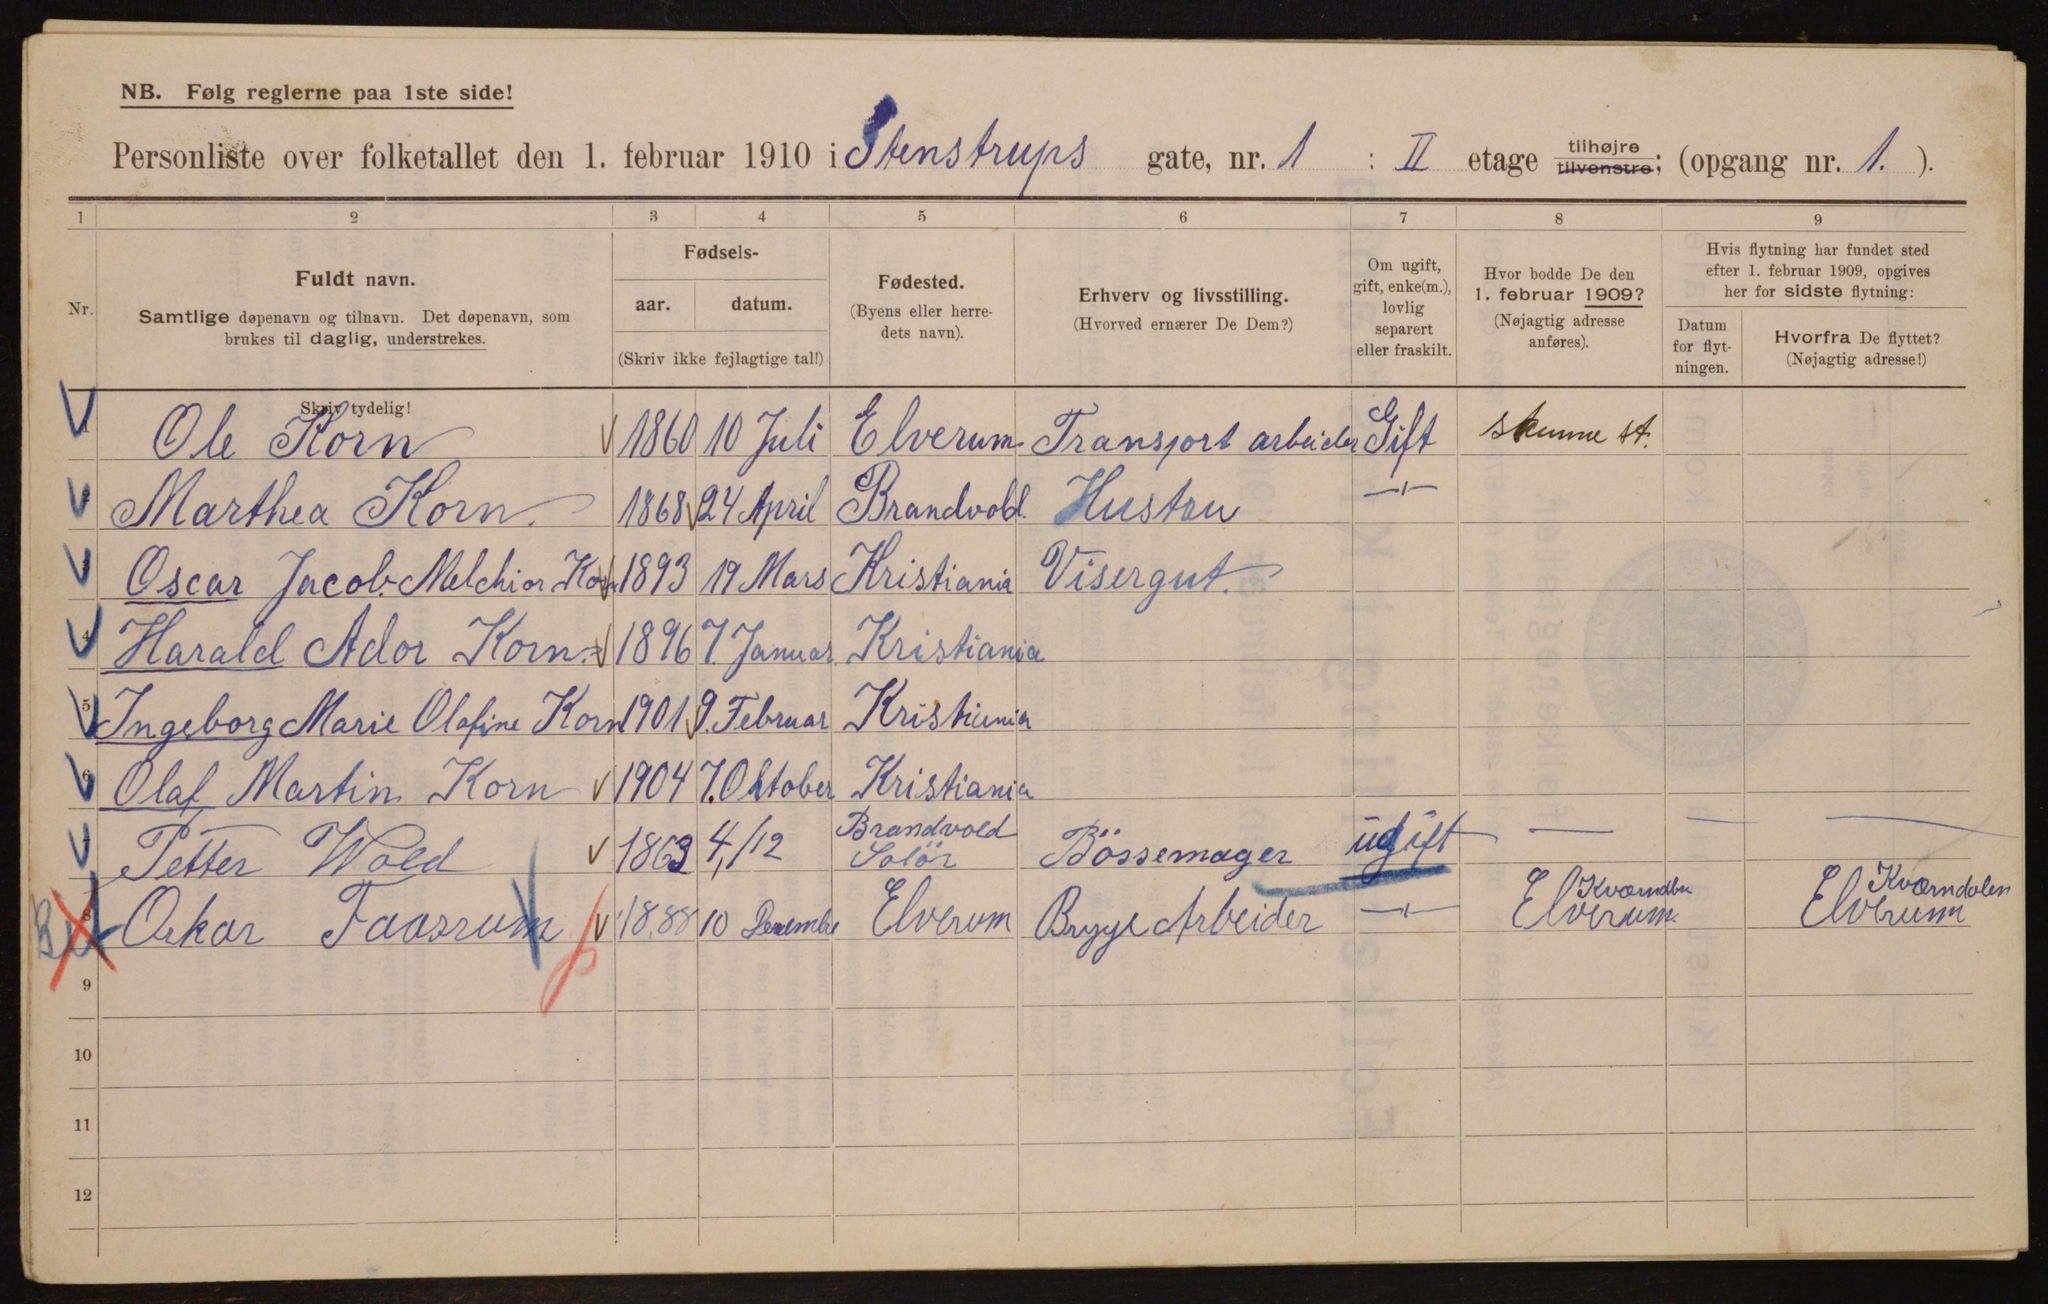 NB. Følg reglerne paa 1ste side!
Personliste over folketallet den 1. februar 1910 i Stenstrups gate, nr. 1 : II etage tilhøjre tilvenstre; (opgang nr. 1.).
1 2 3 4 5 6 7 8 9
Nr.
Fuldt navn.
Samtlige døpenavn og tilnavn. Det døpenavn, som
brukes til daglig, understrekes.
Fødsels-
aar. datum.
(Skriv ikke fejlagtige tal!)
Fødested.
(Byens eller herre-
dets navn).
Erhverv og livsstilling.
(Hvorved ernærer De Dem?)
Om ugift,
gift, enke(m.),
lovlig
separert
eller fraskilt.
Hvor bodde De den
1. februar 1909?
(Nøjagtig adresse
anføres).
Hvis flytning har fundet sted
efter 1. februar 1909, opgives
her for sidste flytning:
Datum
for flyt-
ningen.
Hvorfra De flyttet?
(Nøjagtig adresse!)
Skriv tydelig!
1 Ole Korn 1860 10 Juli Elverum Transport arbeider Gift samme st.
2 Marthea Korn. 1868 24 April Brandvold Hustru —"—
3 Oscar Jacob Melchior Korn 1893 19 Mars Kristiania Visergut.
4 Harald Ador Korn. 1896 7. Januar Kristiania
5 Ingeborg Marie Olafine Korn 1901 9. Februar Kristiania
6 Olaf Martin Korn 1904 7. Oktober Kristiania
7 Petter Wold 1863 4/12 Brandvold Solör Bössemager ugift — — —
8 Oskar 1888 10 Desember Elverum Brygge Arbeider —"— Elverum. Kværndalen Elverum
9
10
11
12